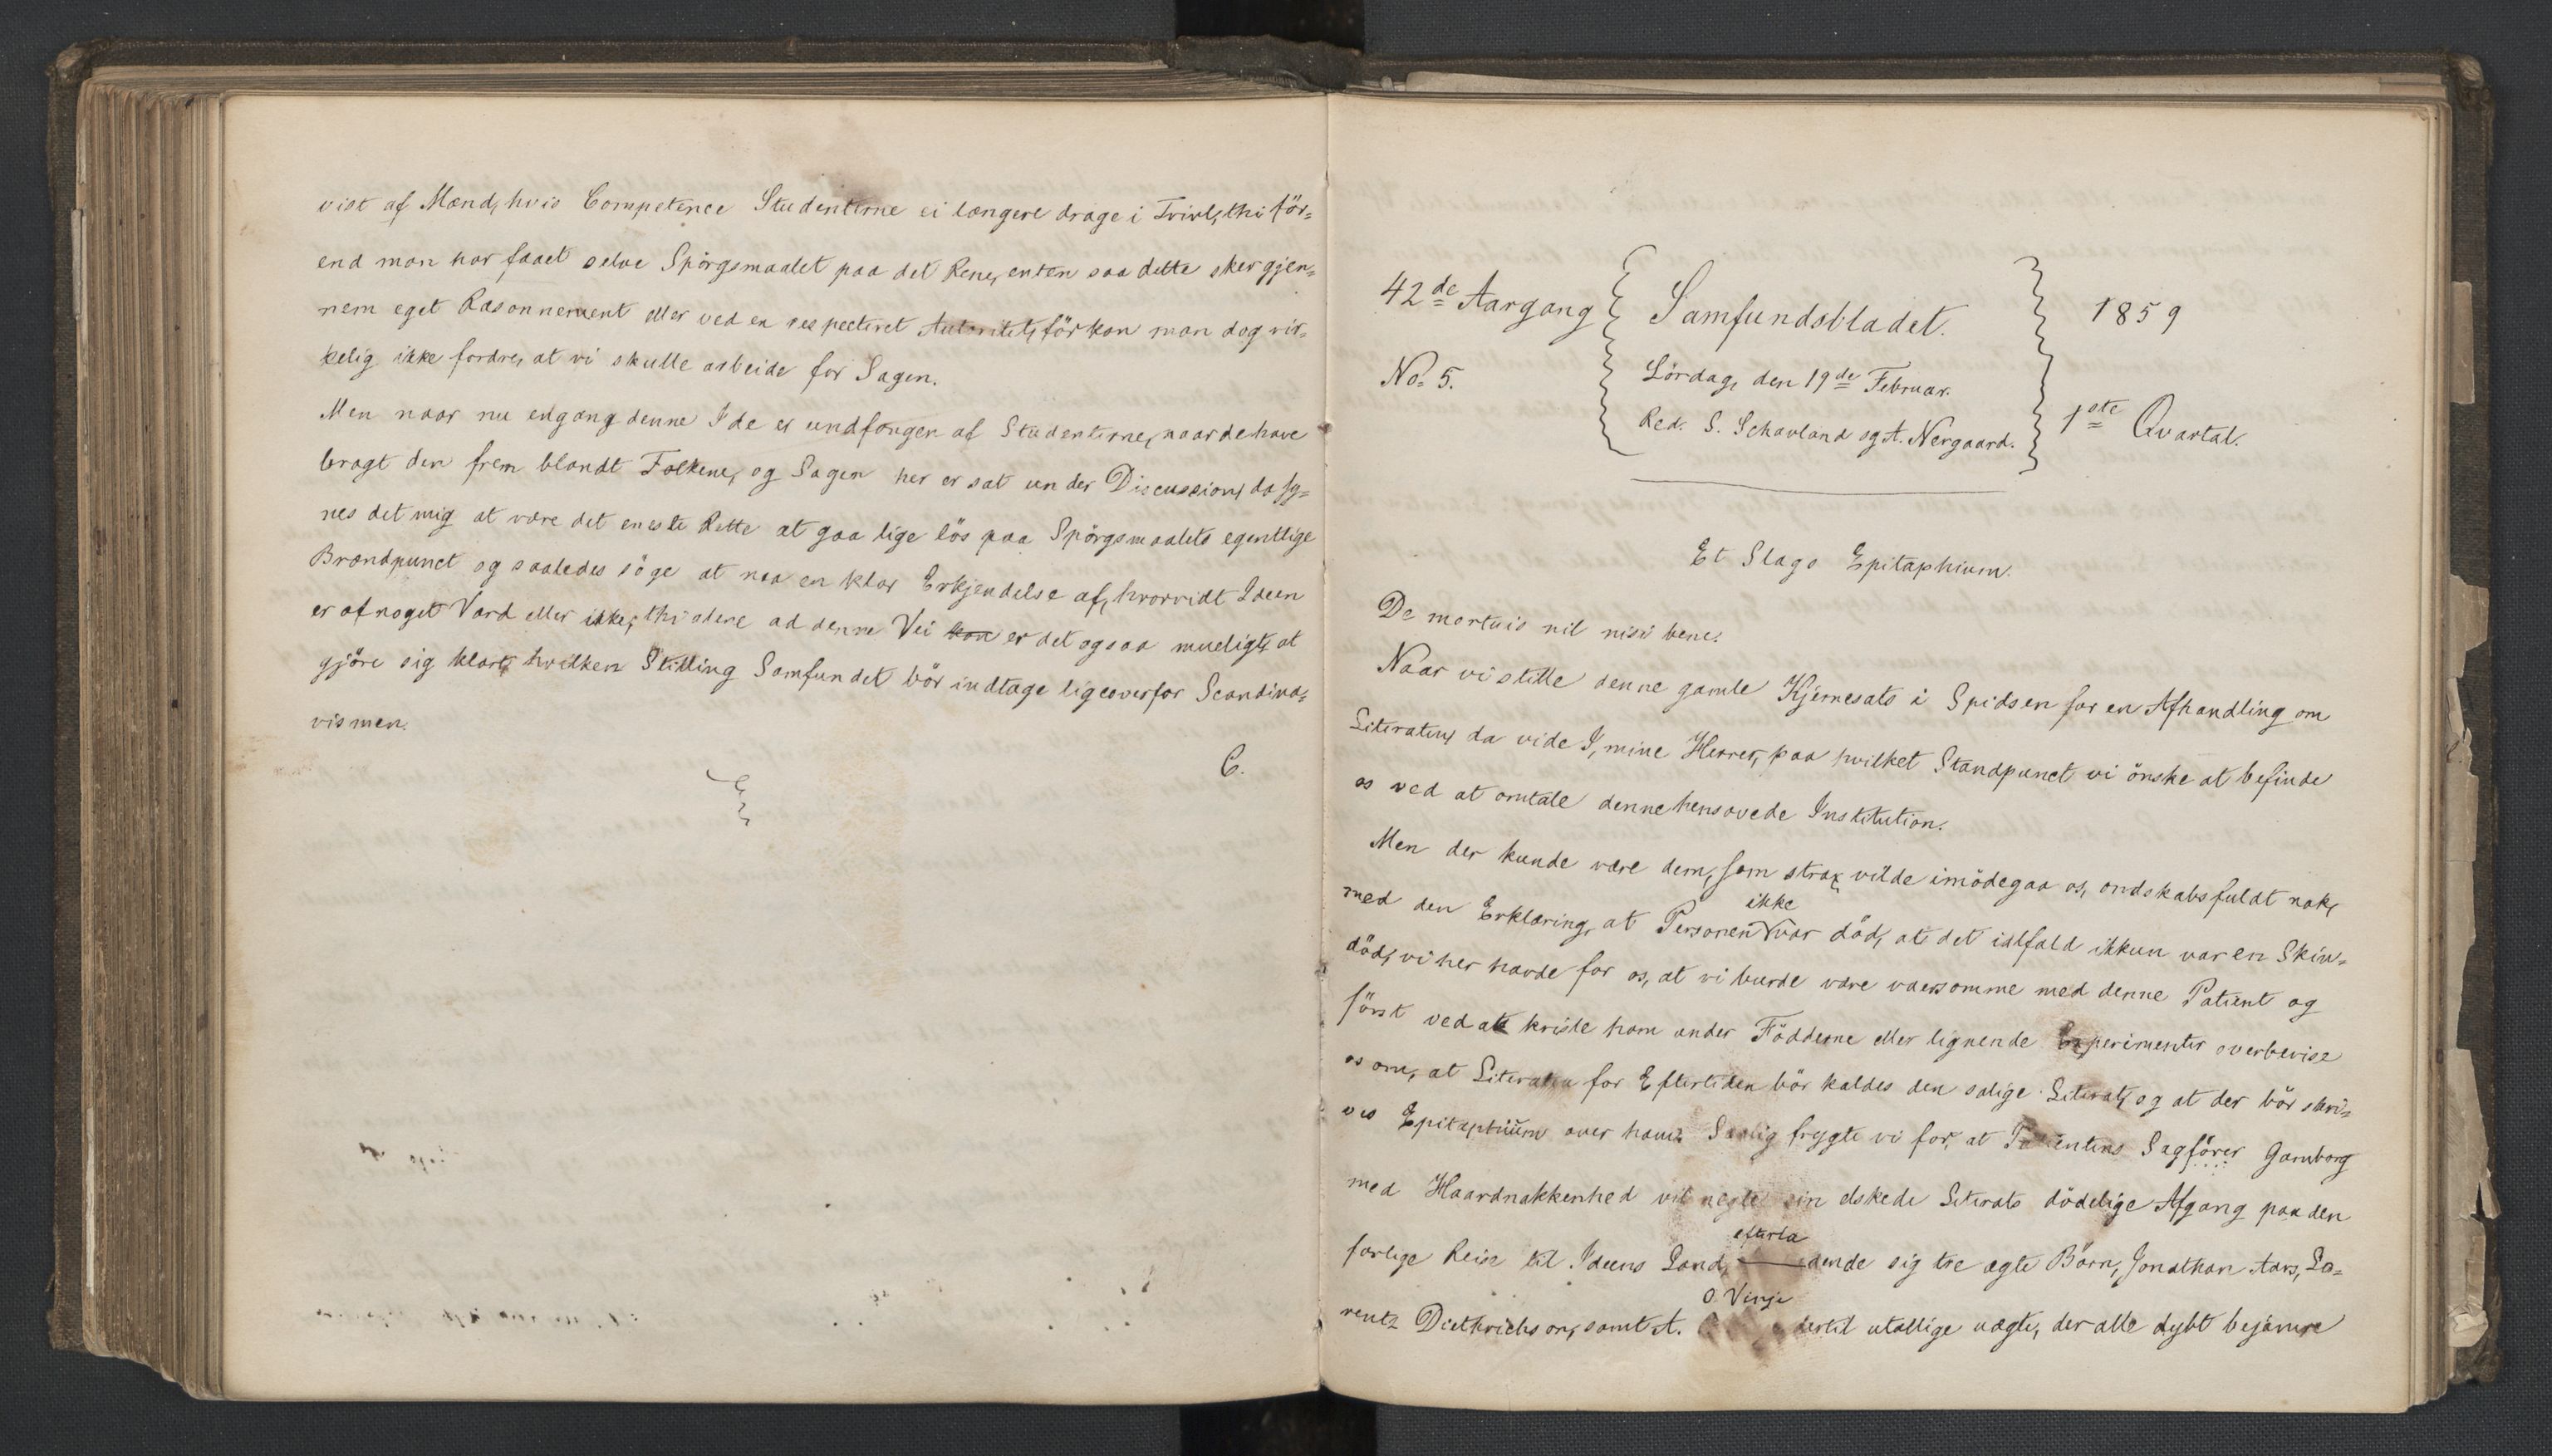 vist af Mænd, hvis Competence Studenterne ei længere drage i Tvivl, thiför-
end man har faaet selve Spörgsmaalet paa det Rene, enten saa dette sker gjen-
nem eget Ræsonnement eller ved en respecteret Autoritet, för kan man dog vir-
kelig ikke fordre, at vi skulle arbeide for Sagen.
Men naar nu engang denne Ide er undfangen af Studenterne, naar de have
bragt den frem blandt Folkene, og Sagen her er sat under Discussion, da sy-
nes det mig at være det eneste Rette at gaa lige lös paa Spörgsmaalets egentlige
Brændpunct og saaledes söge at naa en klar Erkjendelse af, hvorvidt Ideen
er af noget Værd eller ikke; thi alene ad denne Vei kan er det ogsaa mueligt, at
gjöre sig klart, hvilken Stilling Samfundet bör indtage ligeoverfor Scandina-
vismen.
C.
42de Aargang
No. 5.
Samfundsbladet.
Lördag, den 19de Februar.
Red. S. Schavland og A. Nergaard.
1859
1ste Qvartal.
Et Slags Epitaphium.
De mortuis nil nisi bene!
Naar vi stille denne gamle Kjernesats i Spidsen for en Afhandling om
Literaten, da vide I, mine Herrer, paa hvilket Standpunct vi önske at befinde
os ved at omtale denne hensovede Institution.
Men der kunde være dem, som strax vilde imödegaa os, ondskabsfuldt nok,
med den Erklæring, at Personen ikke var död, at det ialfald ikkun var en Skin-
död, vi her havde for os, at vi burde være varsomme med denne Patient og
först ved at kridle ham under Födderne eller lignende Experimenter overbevise
os om, at Literaten for Eftertiden bör kaldes den salige Literat, og at der bör skri-
ves Epitaphium over ham. Særlig frygte vi for, at Patientens Sagförer Gamborg
med Haardnakkenhed vil negte sin elskede Literats dödelige Afgang paa den
farlige Reise til Ideens Land, efterladende sig tre ægte Börn, Jonathan Aars, Lo-
rentz Diethrichson, samt A. O. Vinje dertil utallige uægte, der alle dybt bejamre